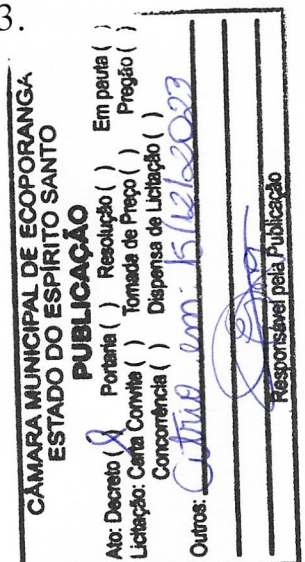 3.
CÂMARA MUNICIPAL DE ECOPORANGA
ESTADO DO ESPÍRITO SANTO
PUBLICAÇÃO
Ato: Decreto ( ) Portaria ( ) Resolução ( ) Em pauta ( )
Licitação: Carta Convite ( ) Tomada de Preço ( ) Pregão ( )
Concorrência ( ) Dispensa de Licitação ( )
Outros: átrio em: 15/12/2023
Responsável pela Publicação